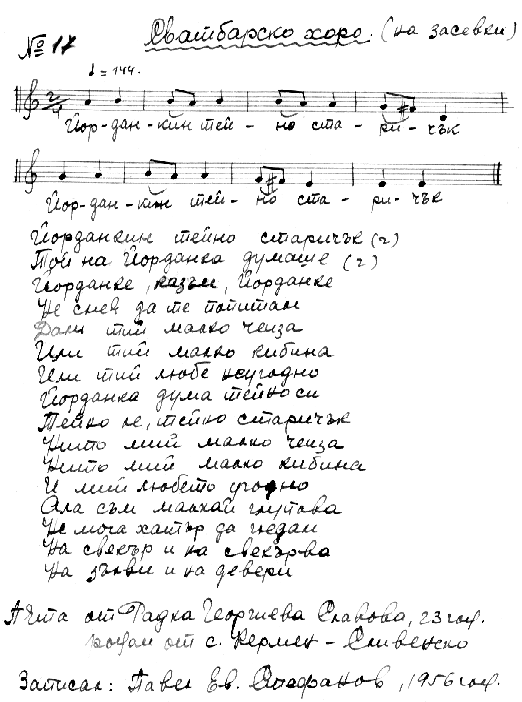 № 17 Сватбарско хоро. (на засевки)
♩ = 144.
2/4
Йор-дан-кин тей-но ста-ри-чък
Йор-дан-кин тей-но ста-ри-чък
Йорданкин тейно старичък (2)
Той на Йорданка думаше (2)
Йорданке, казъм, Йорданке
Не снев да те попитам
Дали тий малко чеиза
Или тий малко кибина
Или тий любе неугодно
Йорданка дума тейноси
Тейно ле, тейно старичък
Нито мий малко чеиза
Нито мий малко кибина
И мий любето угодно
Ала съм малхай глупова
Не мога хатър да гледам
На свекър и на свекърва
На зълви и на девери
Ачита от Радка Георгиева Славова, 23 год.
родом от с. Кермен - Сливенско
Записал: Павел Ев. Стефанов, 1956 год.